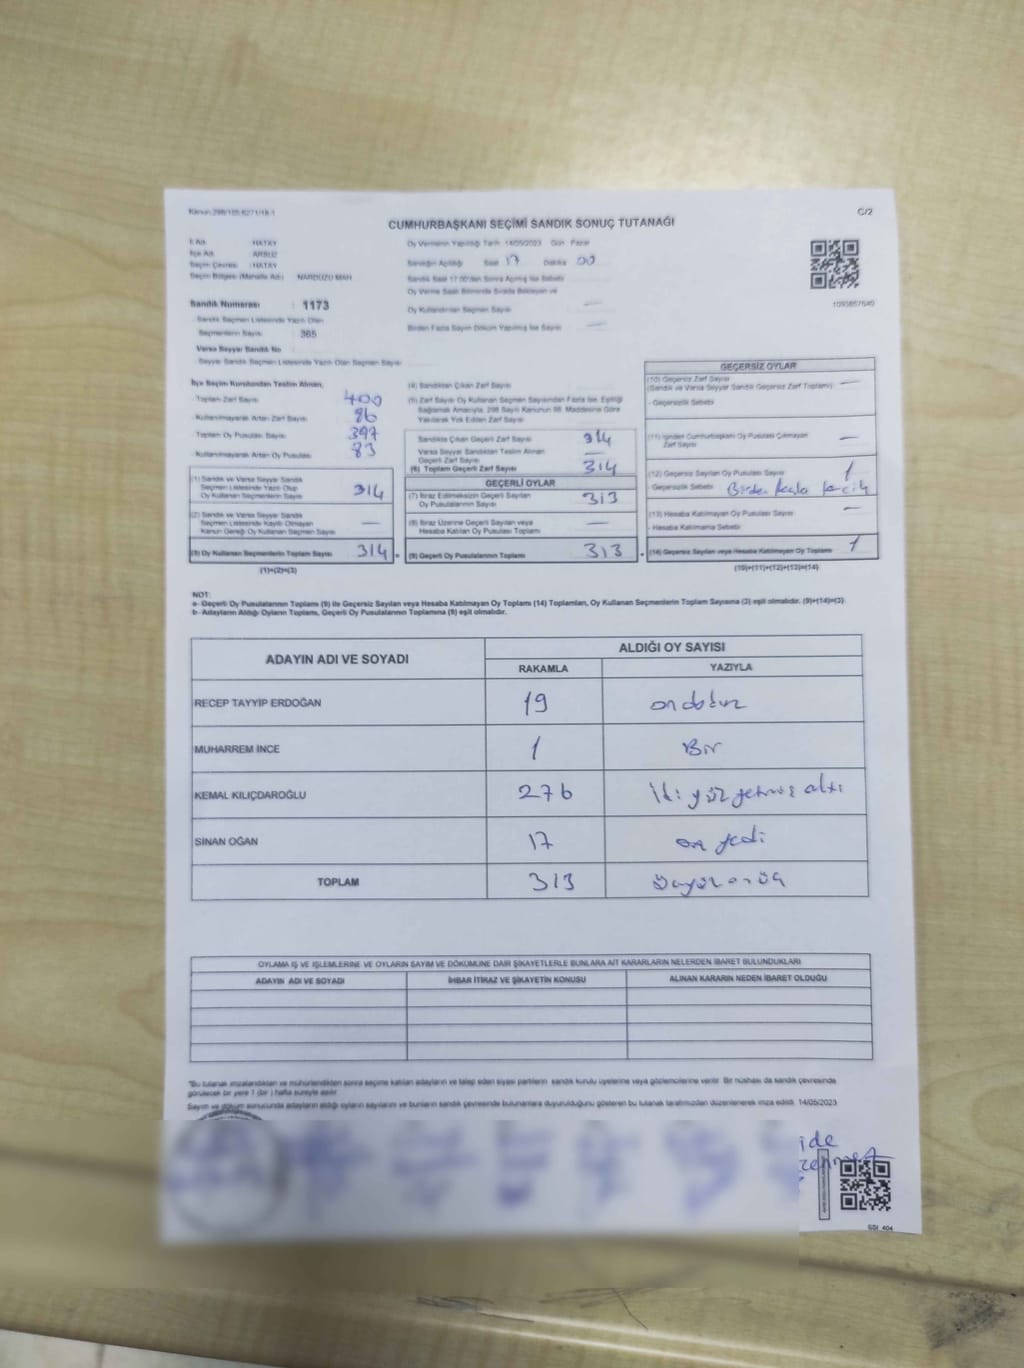 Kanun:298/105;6271/18-1
C/2
CUMHURBAŞKANI SEÇİMİ SANDIK SONUÇ TUTANAĞI
İl Adı : HATAY
İlçe Adı : ARSUZ
Seçim Çevresi : HATAY
Seçim Bölgesi (Mahalle Adı) : NARDÜZÜ MAH
Sandık Numarası : 1173
Sandık Seçmen Listesinde Yazılı Olan
Seçmenlerin Sayısı : 365
Varsa Seyyar Sandık No
Seyyar Sandık Seçmen Listesinde Yazılı Olan Seçmen Sayısı
Oy Vermenin Yapıldığı Tarih 14/05/2023 Gün Pazar
Sandığın Açıldığı Saat 17 Dakika 00
Sandık Saat 17:00'den Sonra Açılmış İse Sebebi
Oy Verme Saati Bitiminde Sırada Bekleyen ve
Oy Kullandırılan Seçmen Sayısı —
Birden Fazla Sayım Döküm Yapılmış İse Sayısı —
1093857640
İlçe Seçim Kurulundan Teslim Alınan;
Toplam Zarf Sayısı 400
Kullanılmayarak Artan Zarf Sayısı 86
Toplam Oy Pusulası Sayısı 397
Kullanılmayarak Artan Oy Pusulası 83
(1) Sandık ve Varsa Seyyar Sandık
Seçmen Listesinde Yazılı Olup
Oy Kullanan Seçmenlerin Sayısı 314
(2) Sandık ve Varsa Seyyar Sandık
Seçmen Listesinde Kayıtlı Olmayan
Kanun Gereği Oy Kullanan Seçmen Sayısı —
(3) Oy Kullanan Seçmenlerin Toplam Sayısı 314
(1)+(2)=(3)
(4) Sandıktan Çıkan Zarf Sayısı
(5) Zarf Sayısı Oy Kullanan Seçmen Sayısından Fazla İse, Eşitliği
Sağlamak Amacıyla, 298 Sayılı Kanunun 98. Maddesine Göre
Yakılarak Yok Edilen Zarf Sayısı
Sandıkta Çıkan Geçerli Zarf Sayısı 314
Varsa Seyyar Sandıktan Teslim Alınan
Geçerli Zarf Sayısı —
(6) Toplam Geçerli Zarf Sayısı 314
GEÇERLİ OYLAR
(7) İtiraz Edilmeksizin Geçerli Sayılan
Oy Pusulalarının Sayısı 313
(8) İtiraz Üzerine Geçerli Sayılan veya
Hesaba Katılan Oy Pusulası Toplamı —
= (9) Geçerli Oy Pusulalarının Toplamı 313
GEÇERSİZ OYLAR
(10) Geçersiz Zarf Sayısı
(Sandık ve Varsa Seyyar Sandık Geçersiz Zarf Toplamı) —
- Geçersizlik Sebebi
(11) İçinden Cumhurbaşkanı Oy Pusulası Çıkmayan
Zarf Sayısı —
(12) Geçersiz Sayılan Oy Pusulası Sayısı 1
- Geçersizlik Sebebi Birden fazla tercih
(13) Hesaba Katılmayan Oy Pusulası Sayısı —
- Hesaba Katılmama Sebebi
+ (14) Geçersiz Sayılan veya Hesaba Katılmayan Oy Toplamı 1
(10)+(11)+(12)+(13)=(14)
NOT:
a- Geçerli Oy Pusulalarının Toplamı (9) ile Geçersiz Sayılan veya Hesaba Katılmayan Oy Toplamı (14) Toplamları, Oy Kullanan Seçmenlerin Toplam Sayısına (3) eşit olmalıdır. (9)+(14)=(3)
b- Adayların Aldığı Oyların Toplamı, Geçerli Oy Pusulalarının Toplamına (9) eşit olmalıdır.
ADAYIN ADI VE SOYADI ALDIĞI OY SAYISI
RAKAMLA YAZIYLA
RECEP TAYYİP ERDOĞAN 19 ondokuz
MUHARREM İNCE 1 Bir
KEMAL KILIÇDAROĞLU 276 iki yüz yetmiş altı
SİNAN OĞAN 17 on yedi
TOPLAM 313 üçyüz onüç
OYLAMA İŞ VE İŞLEMLERİNE VE OYLARIN SAYIM VE DÖKÜMÜNE DAİR ŞİKAYETLERLE BUNLARA AİT KARARLARIN NELERDEN İBARET BULUNDUKLARI
ADAYIN ADI VE SOYADI İHBAR İTİRAZ VE ŞİKAYETİN KONUSU ALINAN KARARIN NEDEN İBARET OLDUĞU
"Bu tutanak imzalandıktan ve mühürlendikten sonra seçime katılan adayların ve talep eden siyasi partilerin sandık kurulu üyelerine veya gözlemcilerine verilir. Bir nüshası da sandık çevresinde
görülecek bir yere 1 (bir) hafta süreyle asılır.
Sayım ve döküm sonucunda adayların aldığı oyların sayılarını ve bunların sandık çevresinde bulunanlara duyurulduğunu gösteren bu tutanak tarafımızdan düzenlenerek imza edildi. 14/05/2023
ide
GSI_404